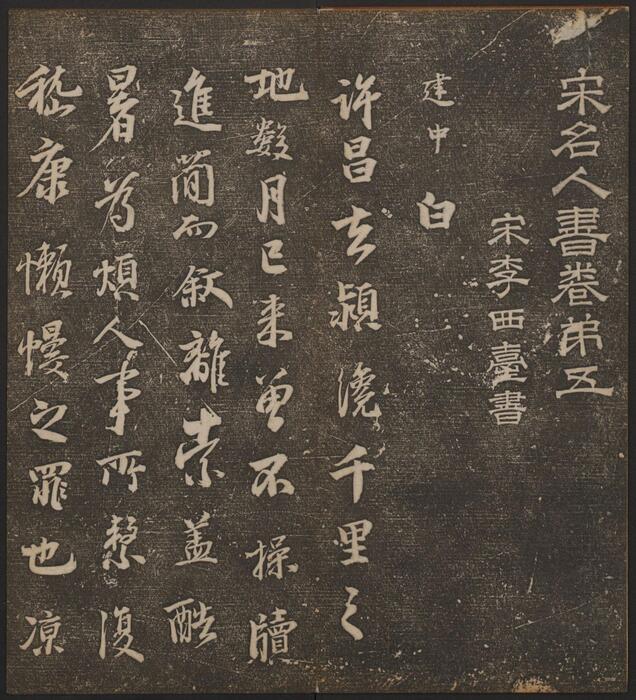 宋名人書卷弟五
宋李西臺書
建中白
許昌去潁澆千里之
地數月已来曽不操牘
進簡而叙離索盖酷
暑爲煩人事所縶復
嵇康懶慢之罪也凉